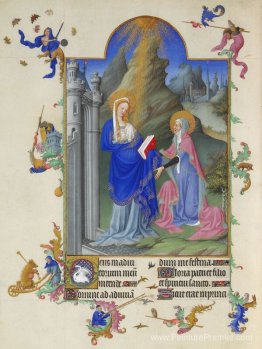 Deus in adiu
torium meum
intende.
Domine ad adiuva
dum me festina.
Gloria patri et filio
et spiritui sancto.
Sicut erat in princi
www.PeinturePremier.com